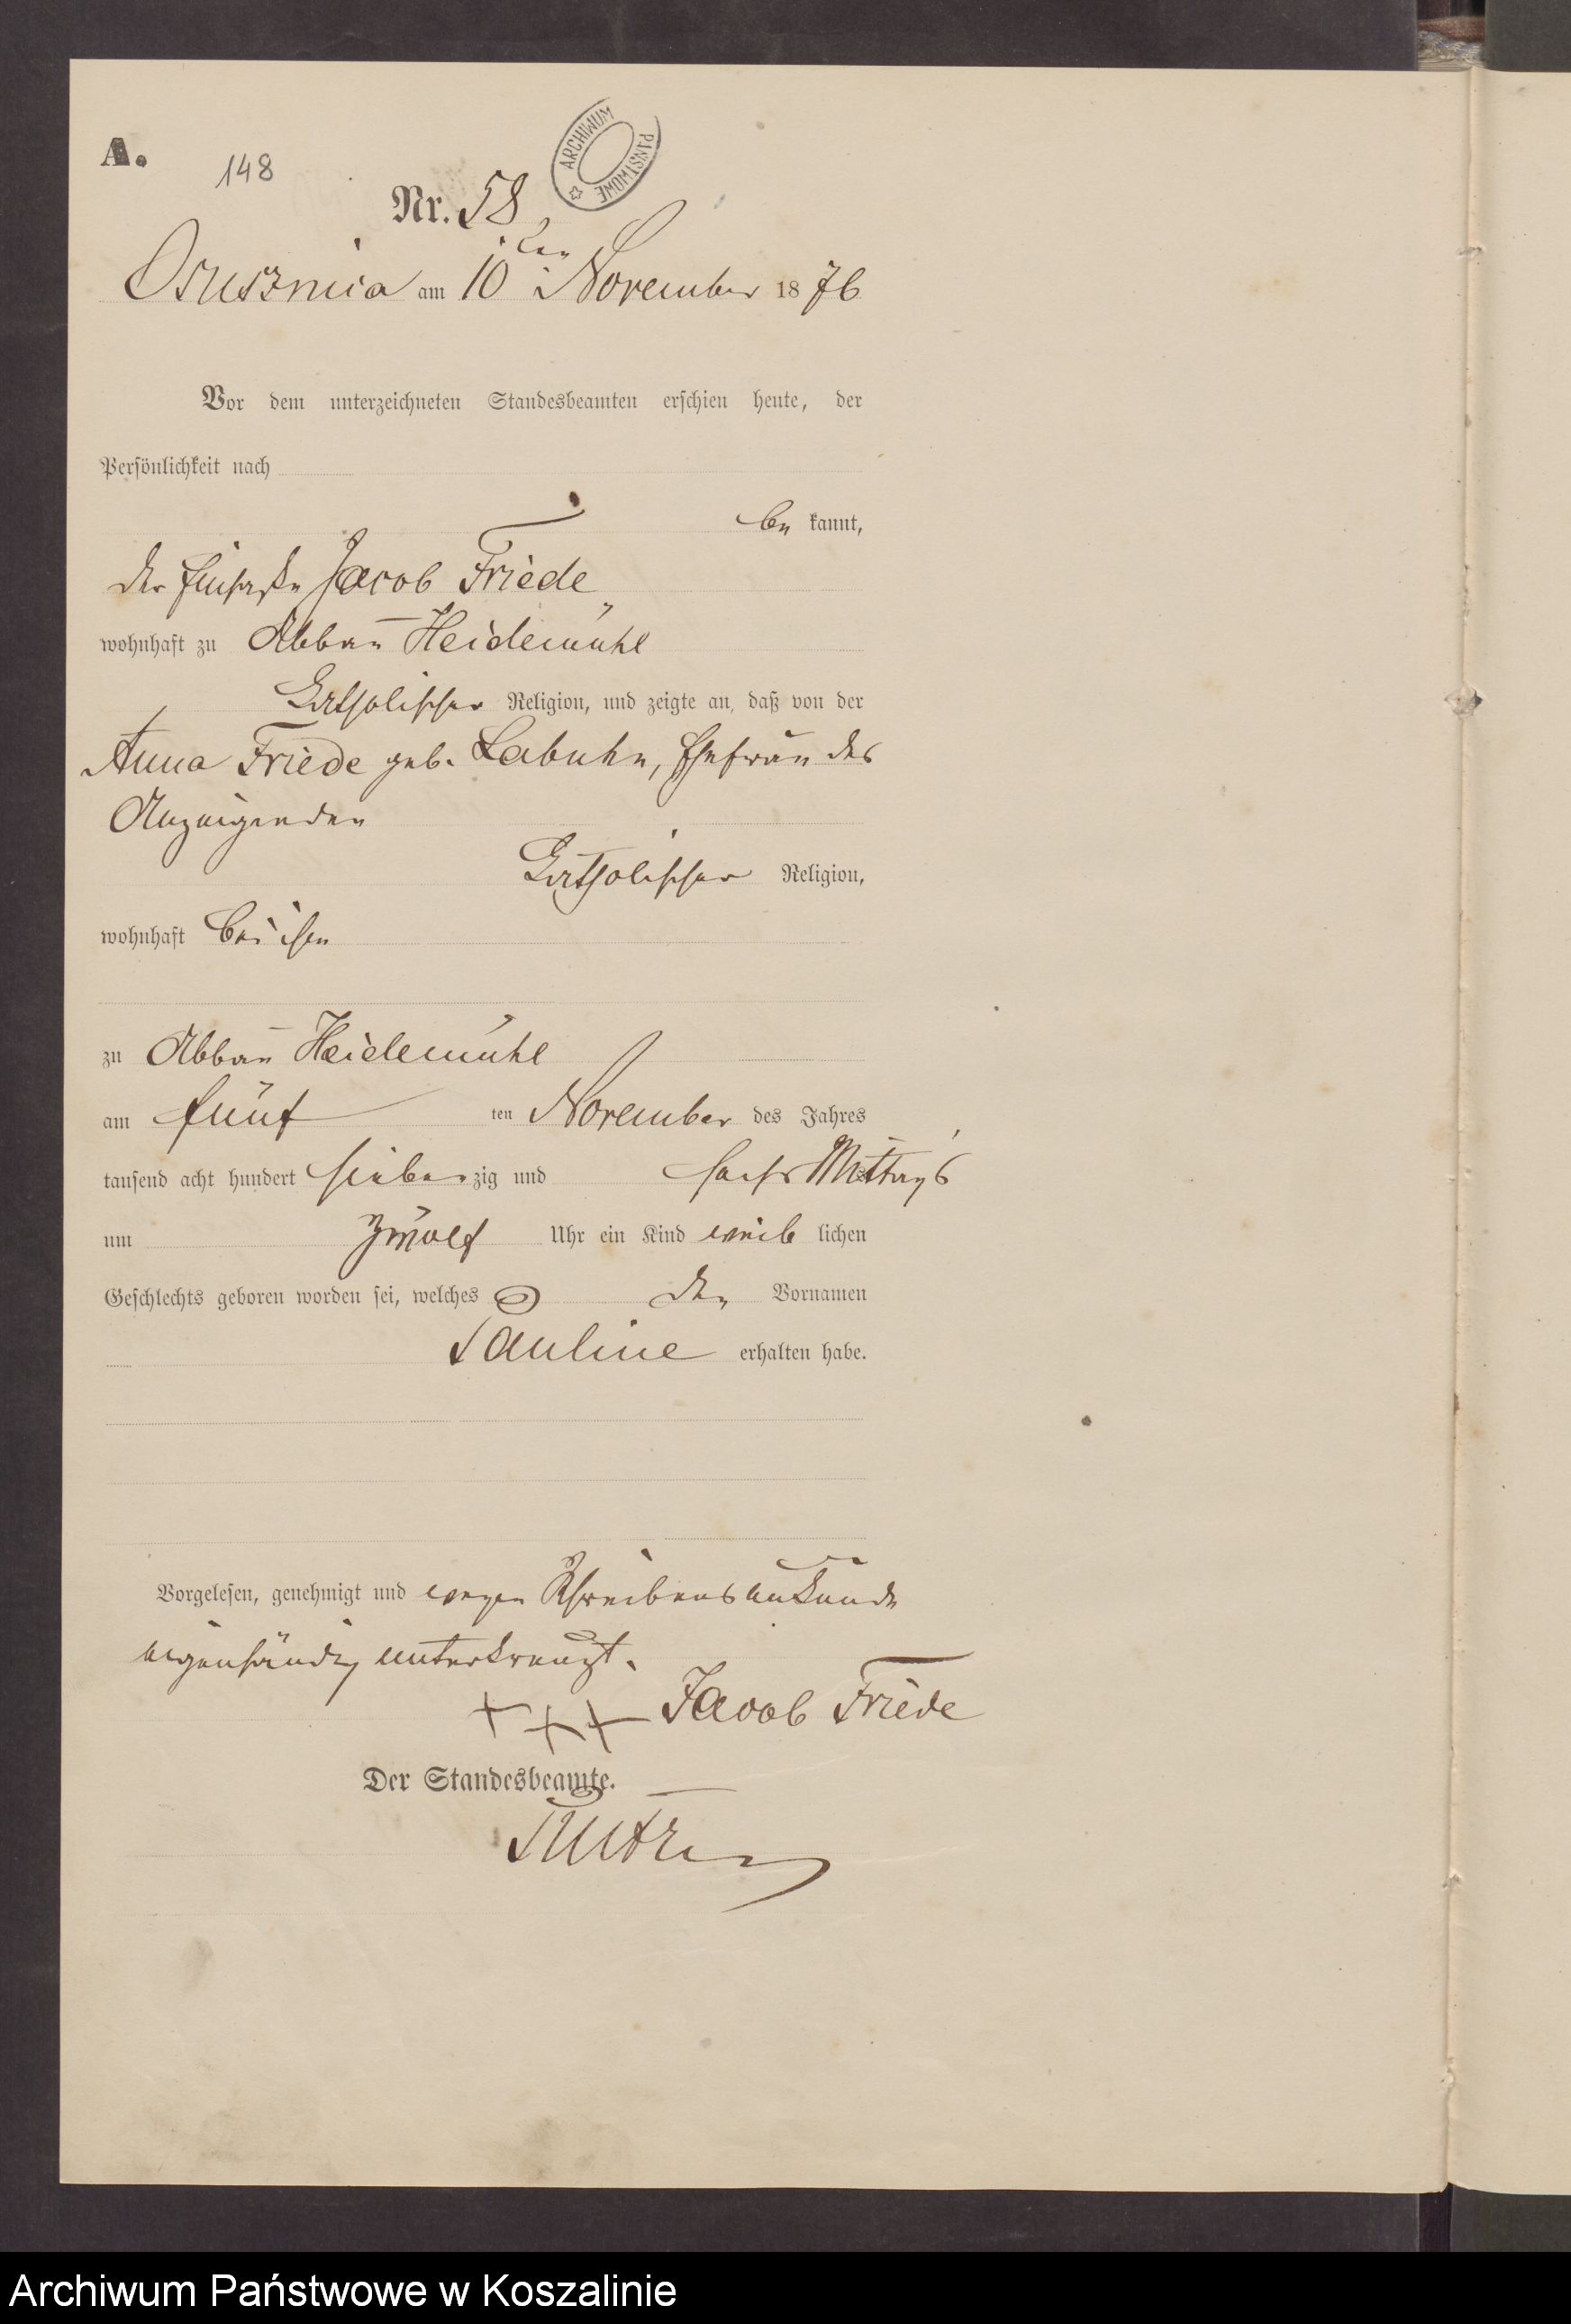 A.
148
ARCHIWUM PAŃSTWOWE
Nr. 58
Osusznica am 10ten November 1876
Vor dem unterzeichneten Standesbeamten erschien heute, der
Persönlichkeit nach
be kannt,
der Einsasse Jacob Friede
wohnhaft zu Abbau Heidemühl
katholischer Religion, und zeigte an, daß von der
Anna Friede geb. Labuhn, Ehefrau des
Anzeigenden
katholischer Religion,
wohnhaft bei ihm
zu Abbau Heidemühl
am fünf ten November des Jahres
tausend acht hundert sieben zig und sechs Mittags
um zwölf Uhr ein Kind weib lichen
Geschlechts geboren worden sei, welches den Vornamen
Pauline erhalten habe.
Vorgelesen, genehmigt und wegen Schreibensunkunde
eigenhändig unterkreuzt.
+ + + Jacob Friede
Der Standesbeamte.
Archiwum Państwowe w Koszalinie